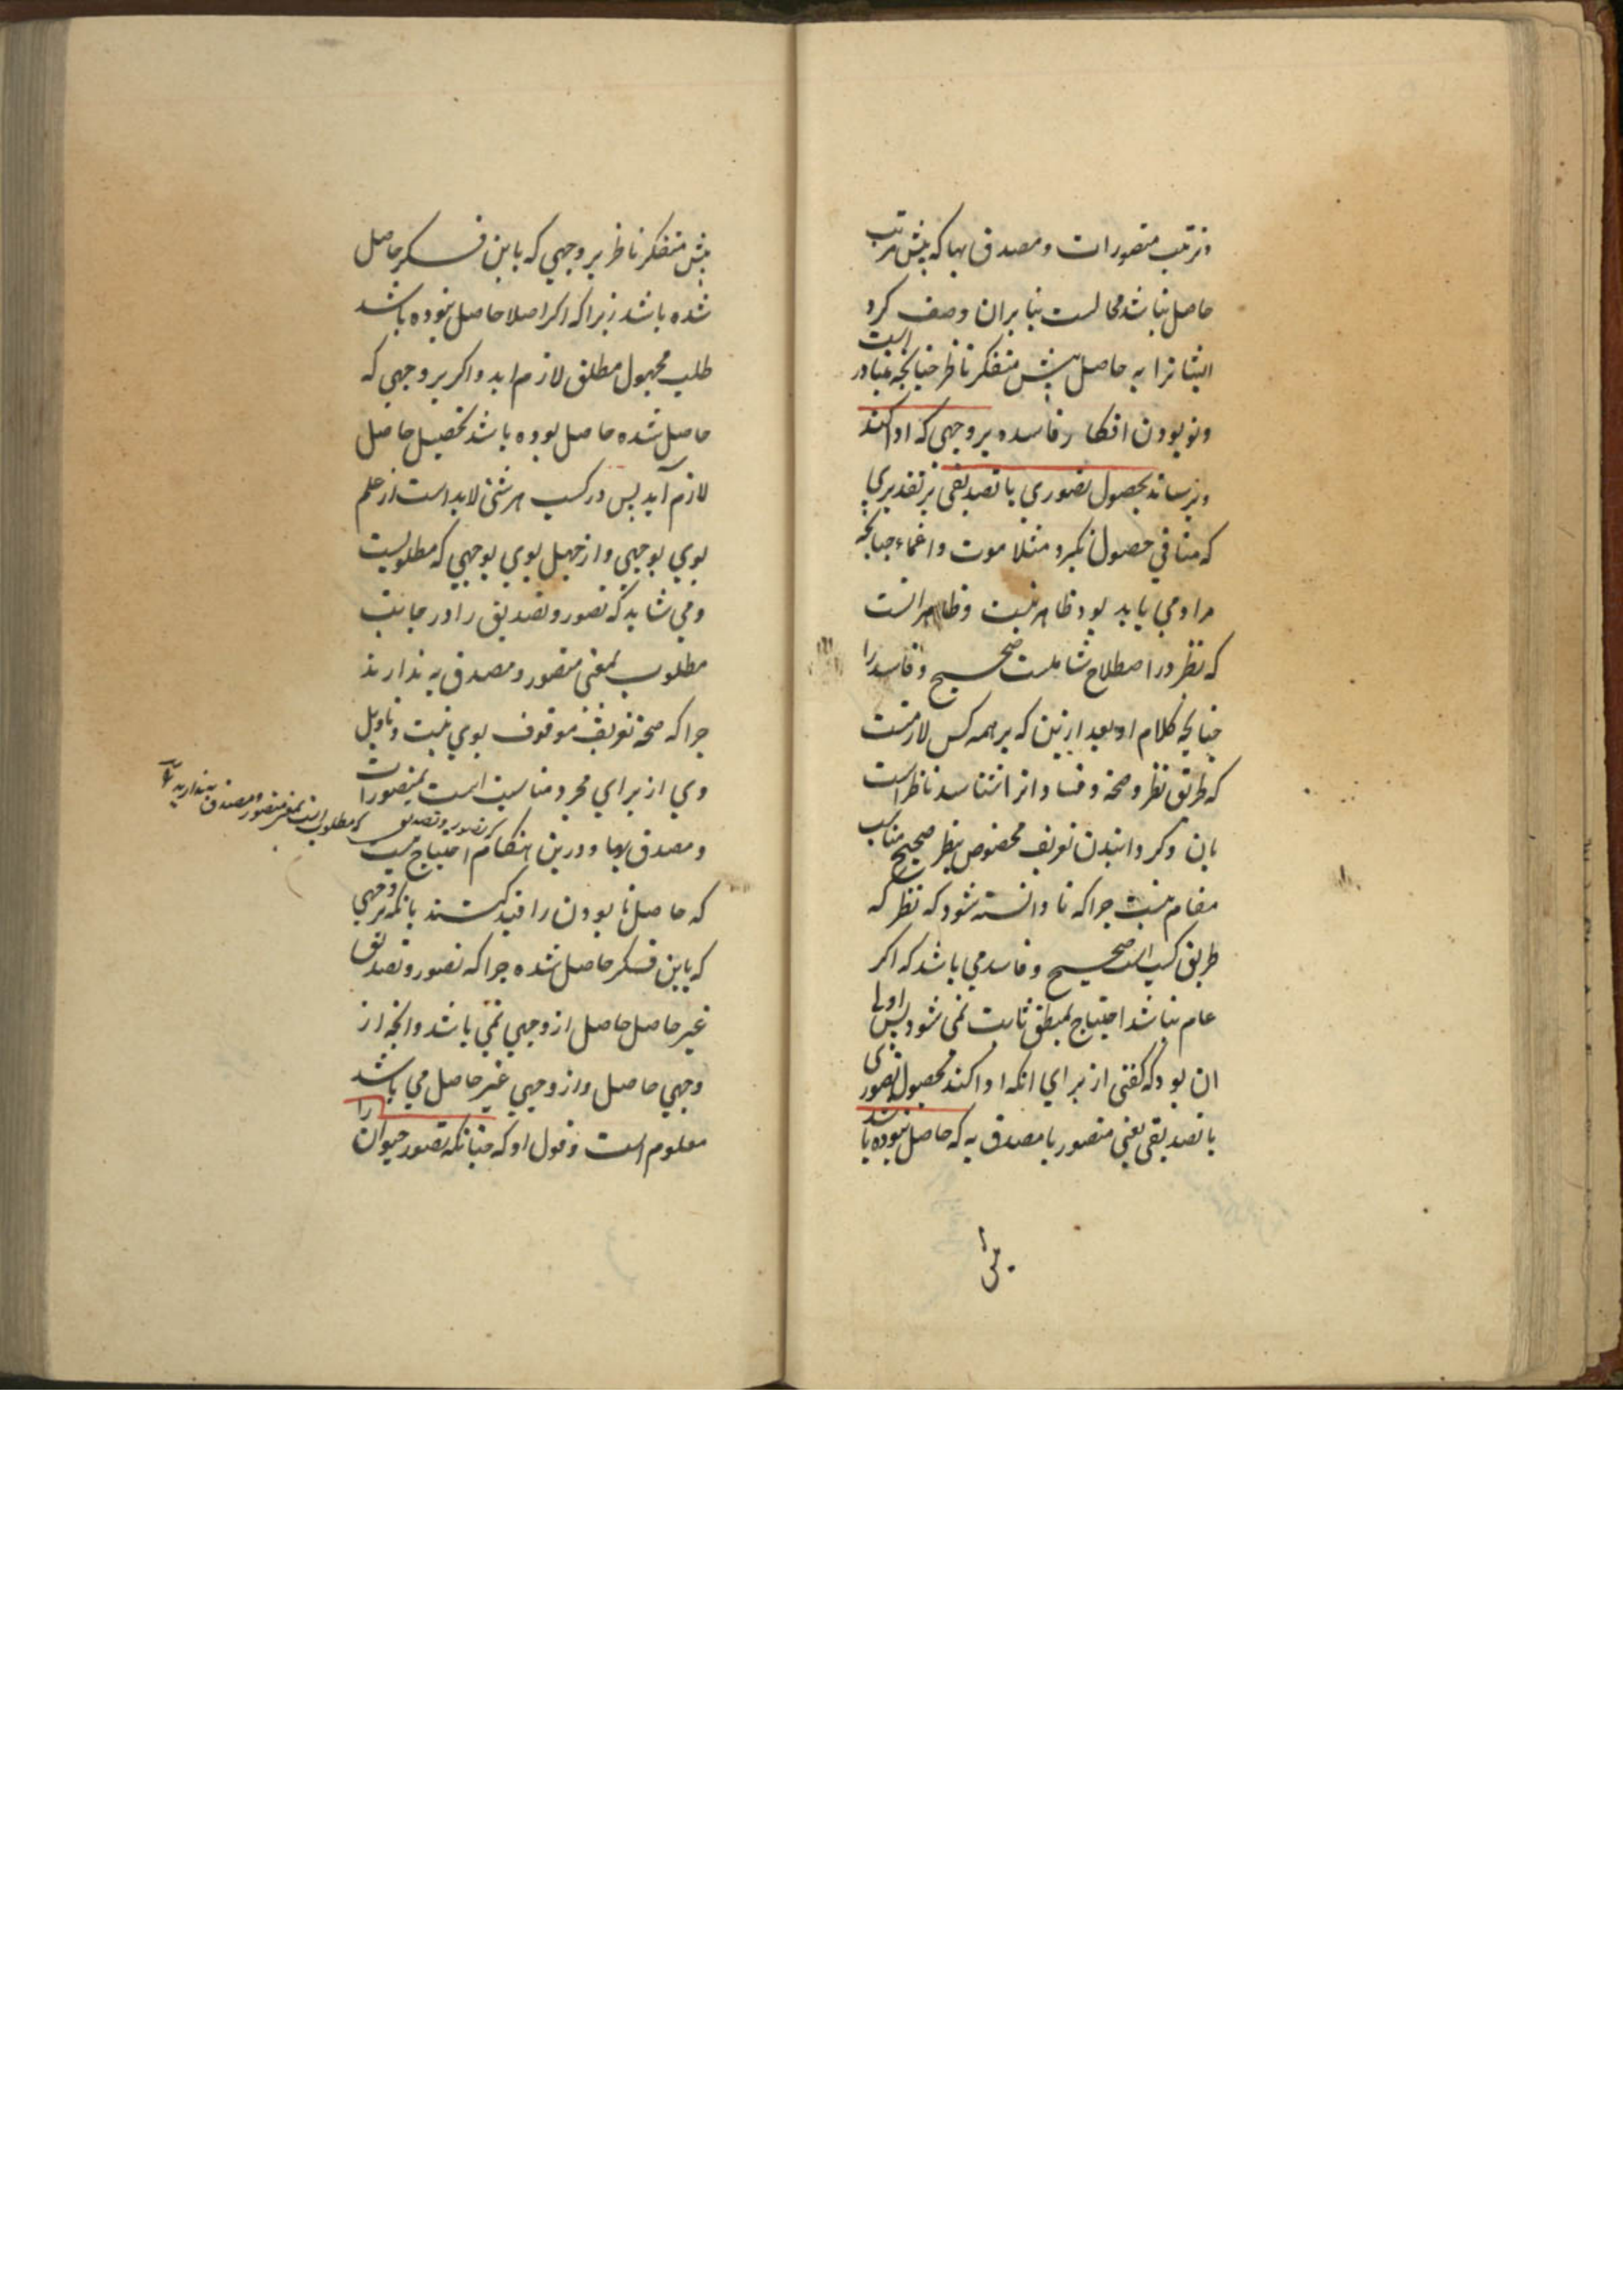 وترتیب متصورات ومصدق بها که پیش مرتب
حاصل نباشد محالست بنابران وصف کرد
ایشانرا به حاصل پیش متفکر ناظر چنانچه متبادر است
ونو بودن افکار فاسده بر وجهی که ادا کند
وبرساند بحصول تصوری یا تصدیقی بر تقدیری
که منافی حصول نکیرد مثلا موت واغماء چنانچه
مراد می باید بود ظاهر نیست وظاهر انست
که نظر در اصطلاح شاملست صحیح وفاسد را
چنانچه کلام او بعد ازین که بر همه کس لازمست
که طریق نظر وصحة وفساد انرا شناسد ناظر است
بان وکردانیدن تعریف مخصوص بنظر صحیح مناسب
مقام نیست چرا که تا دانسته نشود که نظر که
طریق کسب است صحیح وفاسد می باشد که اکر
عام نباشد احتیاج بمنطق ثابت نمی شود پس اولی
ان بود که کفتی از برای انکه ادا کند بحصول تصوری
یا تصدیقی یعنی متصور یا مصدق به که حاصل نبوده باشد
پیش متفکر ناظر بر وجهی که باین فکر حاصل
شده باشد زیرا که اکر اصلا حاصل نبوده باشد
طلب مجهول مطلق لازم اید واکر بر وجهی که
حاصل شده حاصل بوده باشد تحصیل حاصل
لازم آید پس در کسب هر شئ لابد است از علم
بوی بوجهی واز جهل بوی بوجهی که مطلوبست
ومی شاید که تصور وتصدیق را در جانب
مطلوب بمعنی متصور ومصدق به ندارند
چرا که صحة تعریف موقوف بوی نیست وتاویل
وی از برای مجرد مناسبت است بمتصورات
ومصدق بها ودرین هنکام احتیاج نیست
که تصور وتصدیق که مطلوب است بمعنی متصور ومصدق به ندارید
که حاصل نا بودن را قید کنند بانکه بر وجهی
که باین فکر حاصل شده چرا که تصور وتصدیق
غیر حاصل حاصل از وجهی نمی باشد وانچه از
وجهی حاصل واز وجهی غیر حاصل می باشد
معلوم است وقول او که چنانکه تصور حیوان را